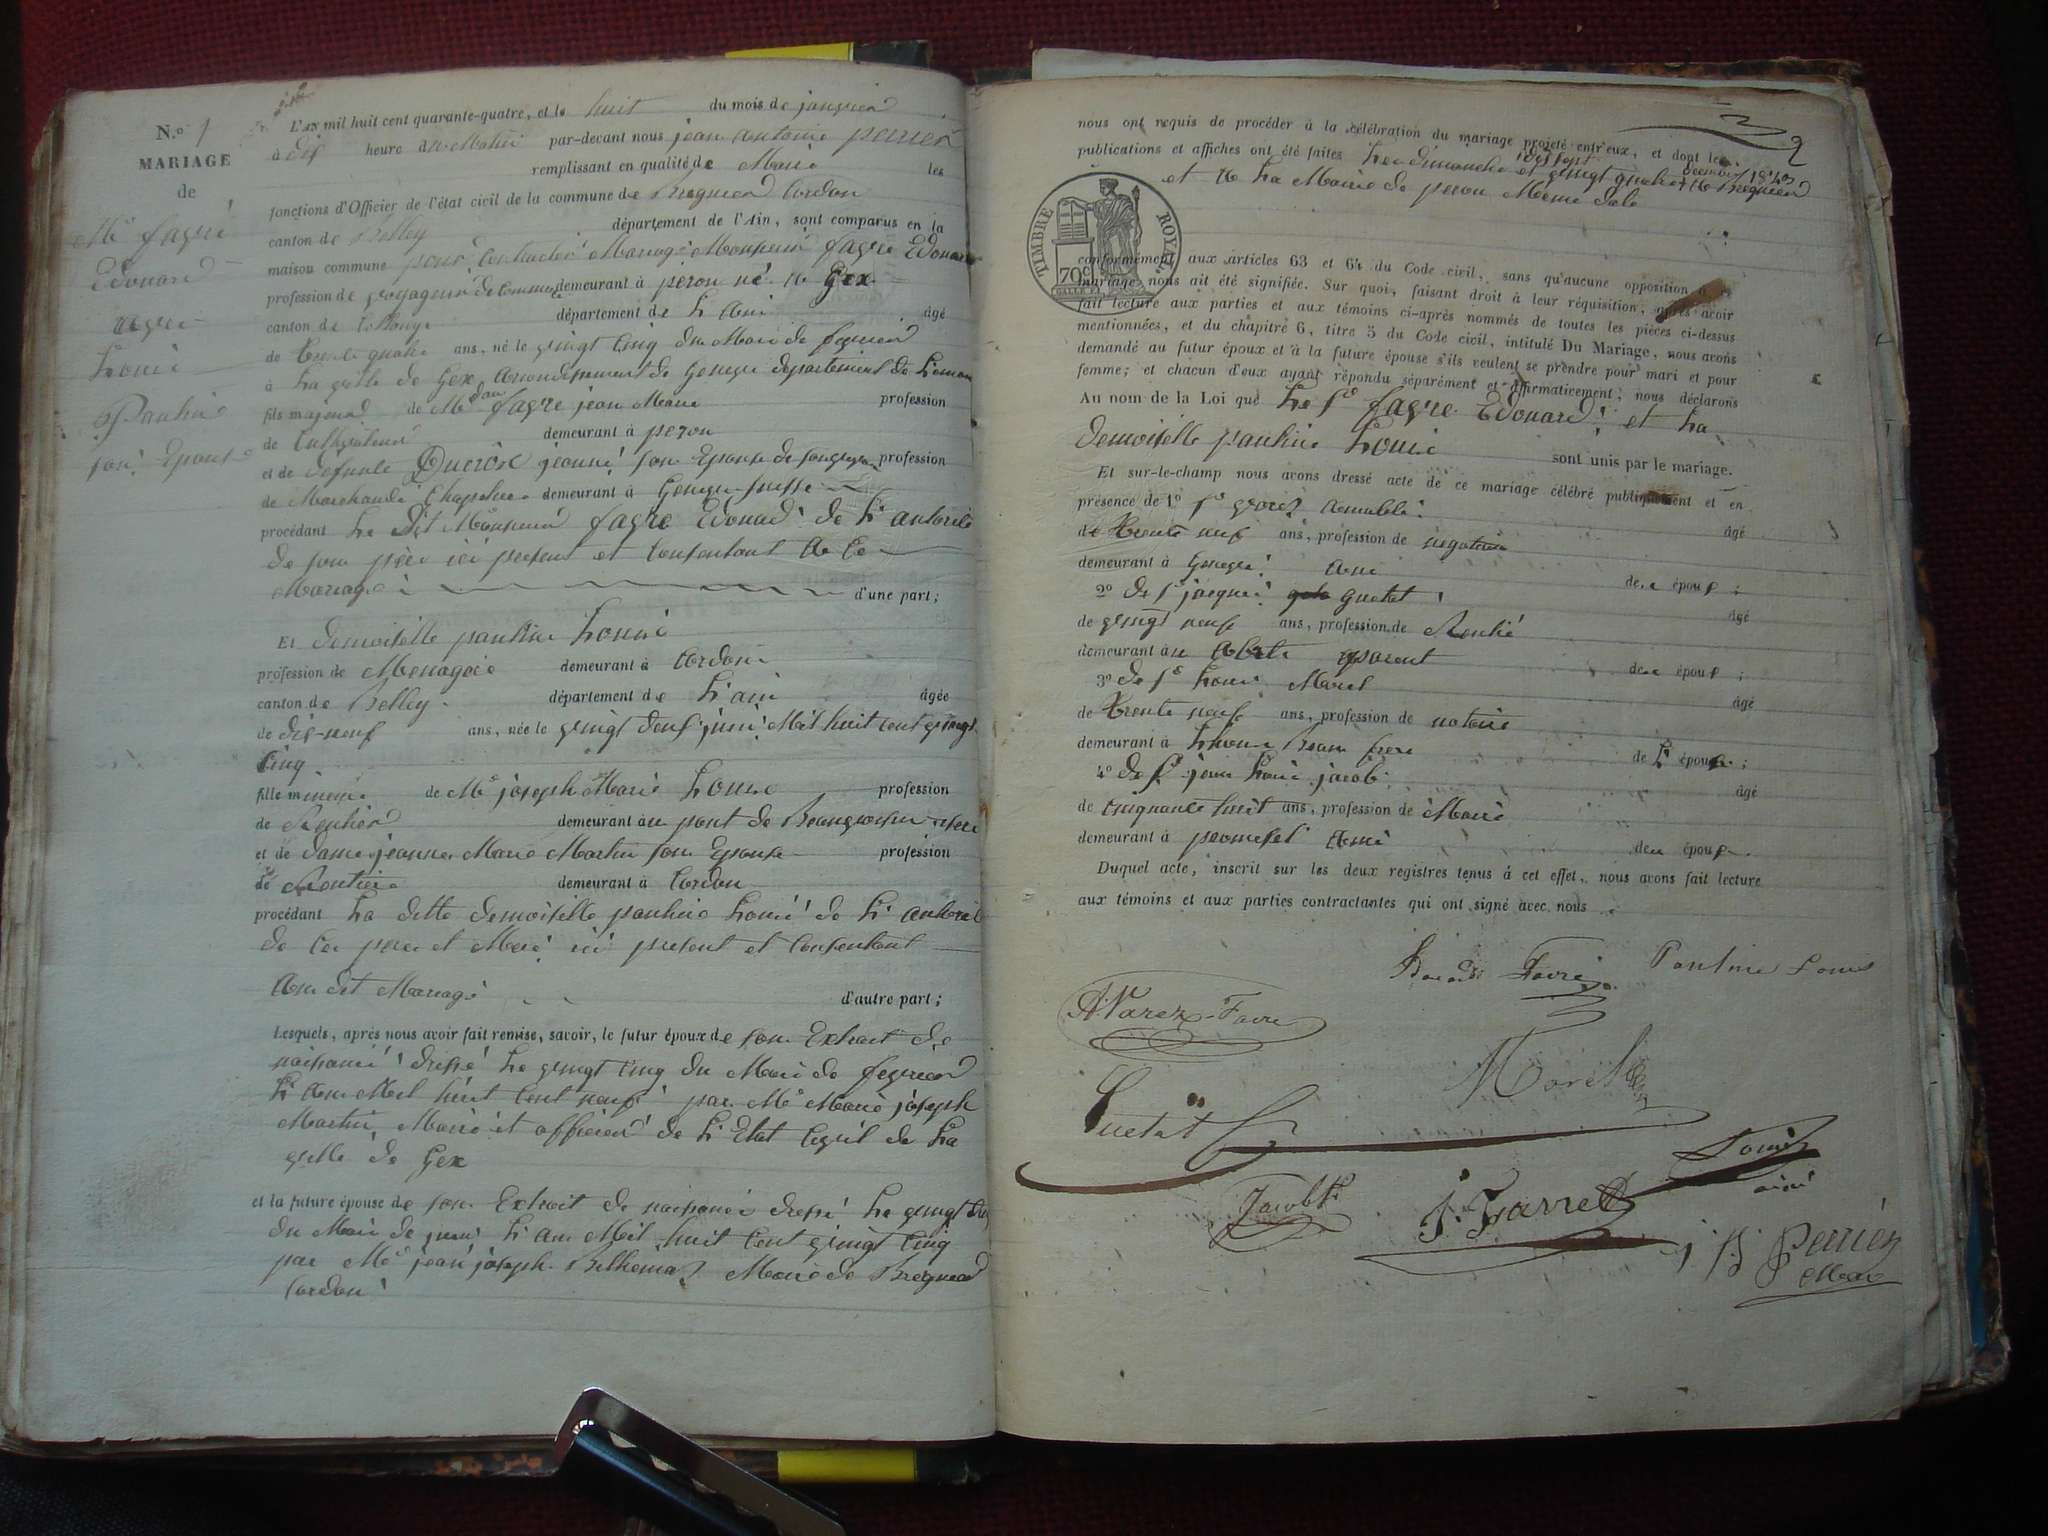 N.º 1
MARIAGE
de
Mr fagre
Edouard
Louie
Pauline
son Epouse
L'AN mil huit cent quarante-quatre, et le huit du mois de janvier
à dix heure du Matin par-devant nous jean antoine perrier
remplissant en qualité de Maire les
fonctions d'Officier de l'état civil de la commune de Bregnier Cordon
canton de Belley département de l'Ain, sont comparus en la
maison commune pour Contracter Mariage Monsieur fagre Edouard
profession de voyageur de Commerce demeurant à peron né a Gex
canton de Collonge département de L'ain âgé
de trente quatre ans, né le vingt Cinq du Mois de fevrier
à La ville de Gex arrondissement de Geneve departement de Leman
fils majeur de Mr fagre jean Marie profession
de Cultivateur demeurant à peron
et de defunte Ducros jeanne son Epouse profession
de Marchande Chapeliere demeurant à Geneve suisse
procédant Le Dit Monsieur fagre Edouad de L'autorité
de son père ici présent et Consentant a Ce
Mariage d'une part;
Et demoiselle pauline Louie
profession de Menagere demeurant à Cordon
canton de Belley département de L'ain âgée
de dix-neuf ans, née le vingt deux juin Mil huit cent vingt
Cinq
fille mineure de Mr joseph Marie Louie profession
de Rentier demeurant au pont de Beauvoisin isere
et de dame jeanne Marie Martin son Epouse profession
de Rentiere demeurant à Cordon
procédant La ditte demoiselle pauline Louie de L'autorité
de Ces pere et Mere ici present et Consentant
Au dit Mariage d'autre part;
Lesquels, après nous avoir fait remise, savoir, le futur époux de son Extrait de
naissance dressé Le vingt Cinq du Mois de fevrier
L'an Mil huit Cent neuf par Mr Marie joseph
Martin Maire et officier de L'Etat Civil de La
ville de Gex
et la future épouse de son Extrait de naissance dressé Le vingt
du Mois de juin L'an Mil huit Cent vingt Cinq
par Mr jean joseph Maire de Bregnier
Cordon
2
nous ont requis de procéder à la célébration du mariage projeté entr'eux, et dont les
publications et affiches ont été faites Les dimanche dix sept et vingt quatre decembre 1843 a Bregnier
et a La Mairie de peron Meme date
TIMBRE ROYAL
70 c
conformément aux articles 63 et 64 du Code civil, sans qu'aucune opposition à ce
mariage nous ait été signifiée. Sur quoi, faisant droit à leur réquisition, après avoir
fait lecture aux parties et aux témoins ci-après nommés de toutes les pièces ci-dessus
mentionnées, et du chapitre 6, titre 5 du Code civil, intitulé Du Mariage, nous avons
demandé au futur époux et à la future épouse s'ils veulent se prendre pour mari et pour
femme; et chacun d'eux ayant répondu séparément et affirmativement; nous déclarons
Au nom de la Loi que Le Sr fagre Edouard et La
demoiselle pauline Louie sont unis par le mariage.
Et sur-le-champ nous avons dressé acte de ce mariage célébré publiquement et en
présence de 1º Sr
de trente neuf ans, profession de negotien âgé
demeurant à Geneve ami de l époux ;
2º de Sr jacque Guetat âgé
de vingt neuf ans, profession de Rentié
demeurant a parent de l époux ;
3º de Sr Louis Morel âgé
de trente neuf ans, profession de notaire
demeurant à Beau frere de L'épouse ;
4º de Sr jean Louis jacob âgé
de cinquante huit ans, profession de Maire
demeurant à ami de l époux
Duquel acte, inscrit sur les deux registres tenus à cet effet, nous avons fait lecture
aux témoins et aux parties contractantes qui ont signé avec nous
Favre Pauline Louis
A. Varez-Favre
Morel
Guetat
Louis
ainé
Jacob J. Favre
Perrier
Maire